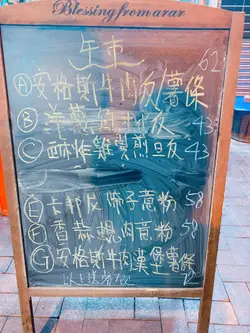 Blessing from arar
午市
62
Ⓐ安格斯牛肉飯/薯條
Ⓑ 洋蔥 牛 飯 43
Ⓒ 酥炸雞翼煎旦飯 43
Ⓔ 卡邦尼 帶子意粉 58
Ⓕ 香蒜 肉意粉 58
Ⓖ安格斯牛肉漢堡薯條
以上送